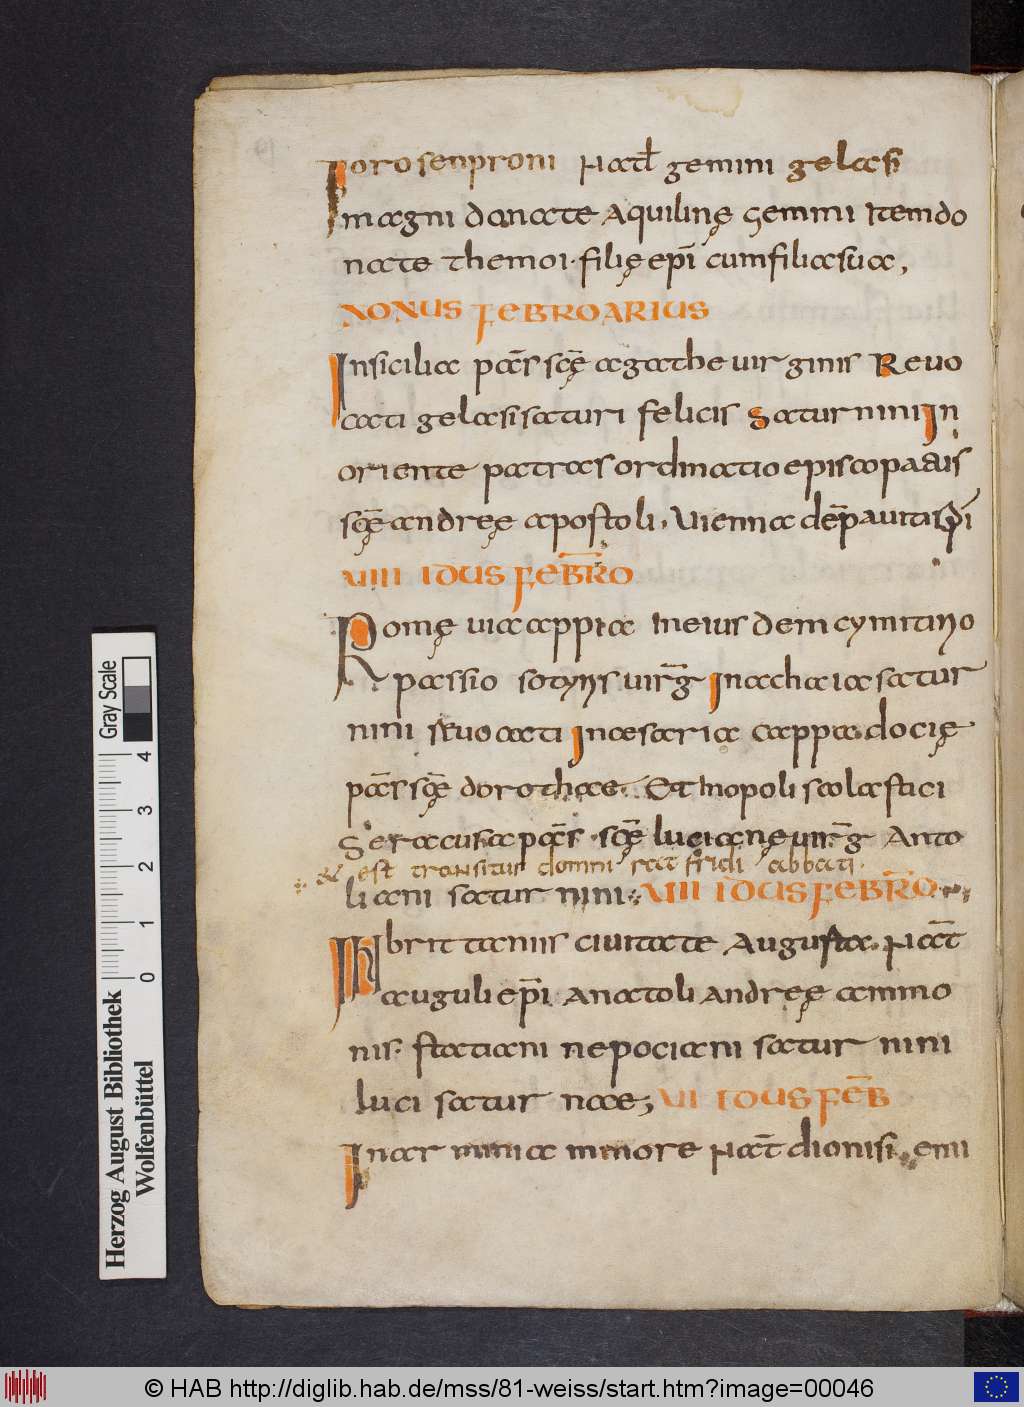 Foro senproni Nat̄ gemini gelasi
magni donate Aquilinę gemmi Item do
nate themoi · filię ep̄i cum filia sua,
NONUS FEBROARIUS
In sicilia pas̄ sc̄ę agathe uirginis Reuo
cati gelasi saturi felicis Saturnini In
oriente patras ordinatio episcopatus
sc̄ę andreę apostoli, Uienna dep̄ auiti ep̄i
UIII IDUS FEBR̄O
Romę uia appia In eiusdem cymitirio
passio sotyris uirḡ In achaia satur
nini Reuocati In cesaria cappadocię
pas̄ sc̄ę dorothae · Et Inopoli scolastici
Seracusa pas̄ · sc̄ę lucianę uirḡ Anto
& est transitus domni ratfridi abbati
liani saturnini UII IDUS FEBR̄O
In britaniis ciuitate Augusta · Nat̄
auguli ep̄i Anatoli Andreę ammo
nis · statiani nepociani saturnini
luci saturnae; UI IDUS FEB̄
In arminia minore Nat̄ dionisi · emi
Herzog August Bibliothek
Wolfenbüttel
0 1 2 3 4
Gray Scale
© HAB http://diglib.hab.de/mss/81-weiss/start.htm?image=00046